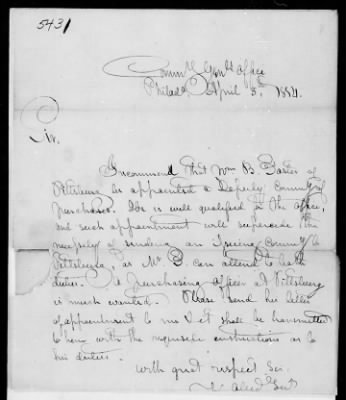 5431
Comm'y Gen'ls Office
Philad'a. April 3d. 1814.
Sir.
I recommend that Wm B. Foster of
Pittsburg be appointed a Deputy Commy of
purchases. He is well qualified for the office,
and such appointment will supercede the
necessity of sending an Issuing Commy to
Pittsburg, as Mr. F. can attend to both
duties. A purchasing officer at Pittsburg
is much wanted. Please send his letter
of appointment to me & it shall be transmitted
to him with the requisite instructions as to
his duties.
With great respect Sir.
Yr Obed Servt